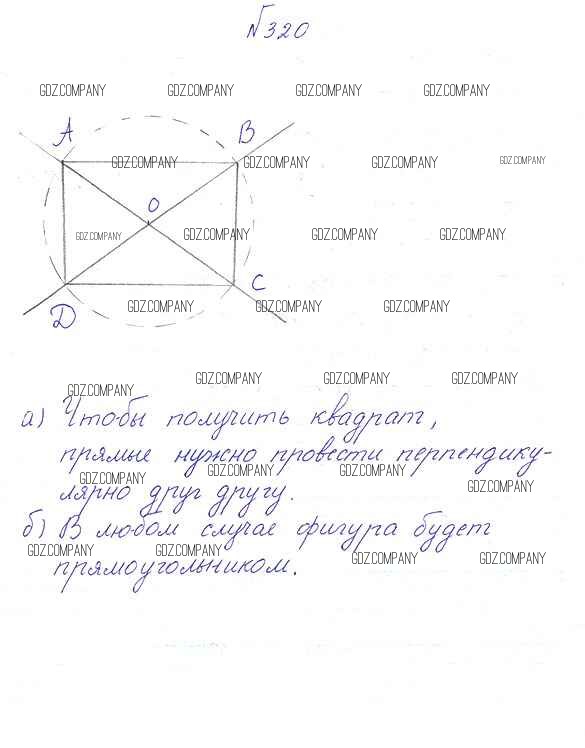 №320
GDZ.COMPANY GDZ.COMPANY GDZ.COMPANY GDZ.COMPANY
A B
GDZ.COMPANY GDZ.COMPANY GDZ.COMPANY GDZ.COMPANY
O
GDZ.COMPANY GDZ.COMPANY GDZ.COMPANY GDZ.COMPANY
C
GDZ.COMPANY GDZ.COMPANY GDZ.COMPANY
D
GDZ.COMPANY GDZ.COMPANY GDZ.COMPANY GDZ.COMPANY
а) Чтобы получить квадрат,
прямые нужно провести перпендику-
GDZ.COMPANY GDZ.COMPANY GDZ.COMPANY GDZ.COMPANY
лярно друг другу.
б) В любом случае фигура будет
GDZ.COMPANY GDZ.COMPANY GDZ.COMPANY GDZ.COMPANY
прямоугольником.